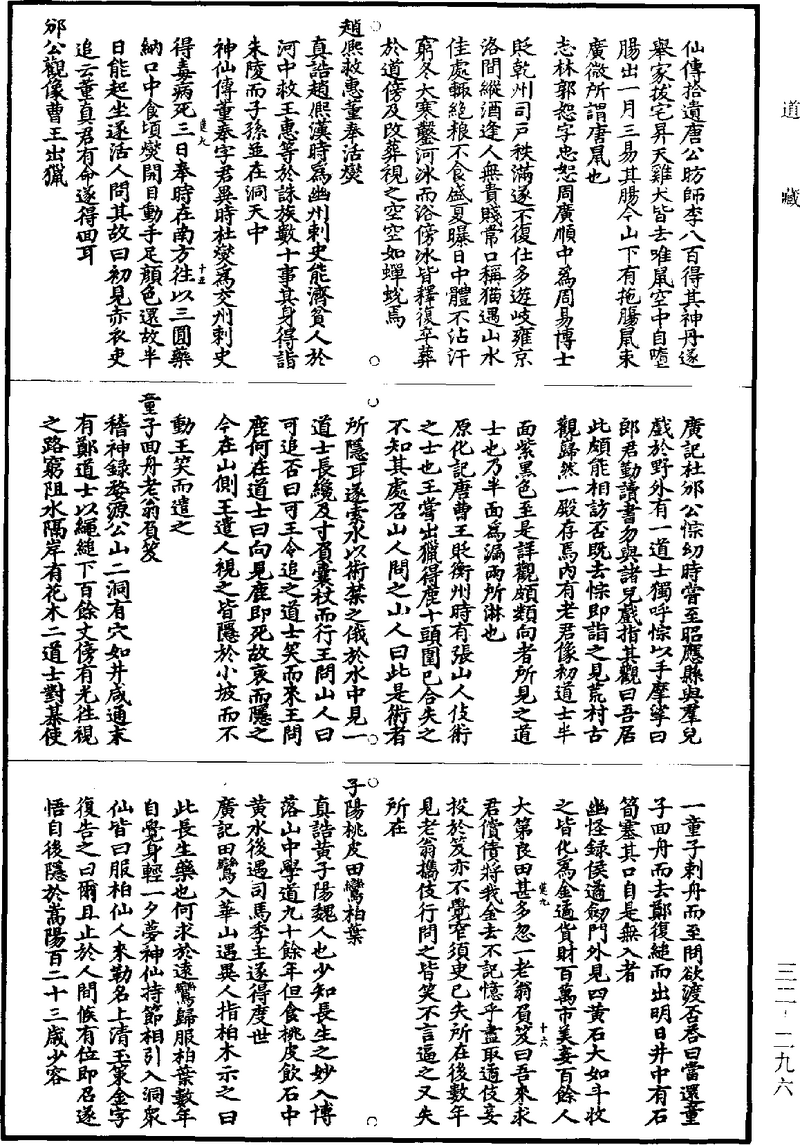 道藏
仙傳拾遺唐公昉師李八百得其神丹遂
舉家拔宅昇天雞犬皆去唯鼠空中自墮
腸出一月三易其腸今山下有拖腸鼠束
廣微所謂唐鼠也
志林郭恕字忠恕周廣順中為周易博士
貶乾州司戶秩滿遂不復仕多遊岐雍京
洛間縱酒逢人無貴賤常口稱猫遇山水
佳處輒絕粮不食盛夏曝日中體不沾汗
窮冬大寒鑿河冰而浴傍冰皆釋復卒葬
於道傍及改葬視之空空如蟬蛻焉
趙熙救惠董奉活燮
真誥趙熙漢時為幽州刺史能濟貧人於
河中救王惠等於誅族數十事其身得詣
朱陵而子孫並在洞天中
神仙傳董奉字君異時杜燮為交州刺史
得毒病死三日奉時在南方往以三圓藥
納口中食頃燮開目動手足顏色還故半
日能起坐遂活人問其故曰初見赤衣吏
追云董真君有命遂得回耳
邠公觀像曹王出獵
廣記杜邠公悰幼時嘗至昭應縣與羣兒
戲於野外有一道士獨呼悰以手摩挲曰
郎君勤讀書勿與諸兒戲指其觀曰吾居
此頗能相訪否既去悰即詣之見荒村古
觀歸然一殿存焉內有老君像初道士半
面紫黑色至是詳觀頗類向者所見之道
士也乃半面為漏雨所淋也
原化記唐曹王貶衡州時有張山人伎術
之士也王嘗出獵得鹿十頭圍已合失之
不知其處召山人問之山人曰此是術者
所隱耳遂索水以術禁之俄於水中見一
道士長纔及寸負囊杖而行王問山人曰
可追否曰可王令追之道士笑而來王問
鹿何在道士曰向見鹿即死故哀而隱之
今在山側王遣人視之皆隱於小坡而不
動王笑而遣之
童子回舟老翁負笈
稽神錄婺源公山二洞有穴如井咸通末
有鄭道士以繩縋下百餘丈傍有光往視
之路窮阻水隔岸有花木二道士對棊使
一童子刺舟而至問欲渡否荅曰當還童
子回舟而去鄭復縋而出明日井中有石
筍塞其口自是無入者
幽怪錄侯遹劒門外見四黃石大如斗收
之皆化為金遹貨財百萬市美妾百餘人
大第良田甚多忽一老翁負笈曰吾來求
君償債將我金去不記憶乎盡取遹伎妾
投於笈亦不覺窄須臾已失所在後數年
見老翁攜伎行問之皆笑不言逼之又失
所在
子陽桃皮田鸞柏葉
真誥黃子陽魏人也少知長生之妙入博
落山中學道九十餘年但食桃皮飲石中
黃水後遇司馬季主遂得度世
廣記田鸞入華山遇異人指柏木示之曰
此長生藥也何求於遠鸞歸服柏葉數年
自覺身輕一夕夢神仙持節相引入洞眾
仙皆曰服柏仙人來勒名上清玉策金字
復告之曰爾且止於人間候有位即召遂
悟自後隱於嵩陽百二十三歲少容
十五
十六
三二‧二九六